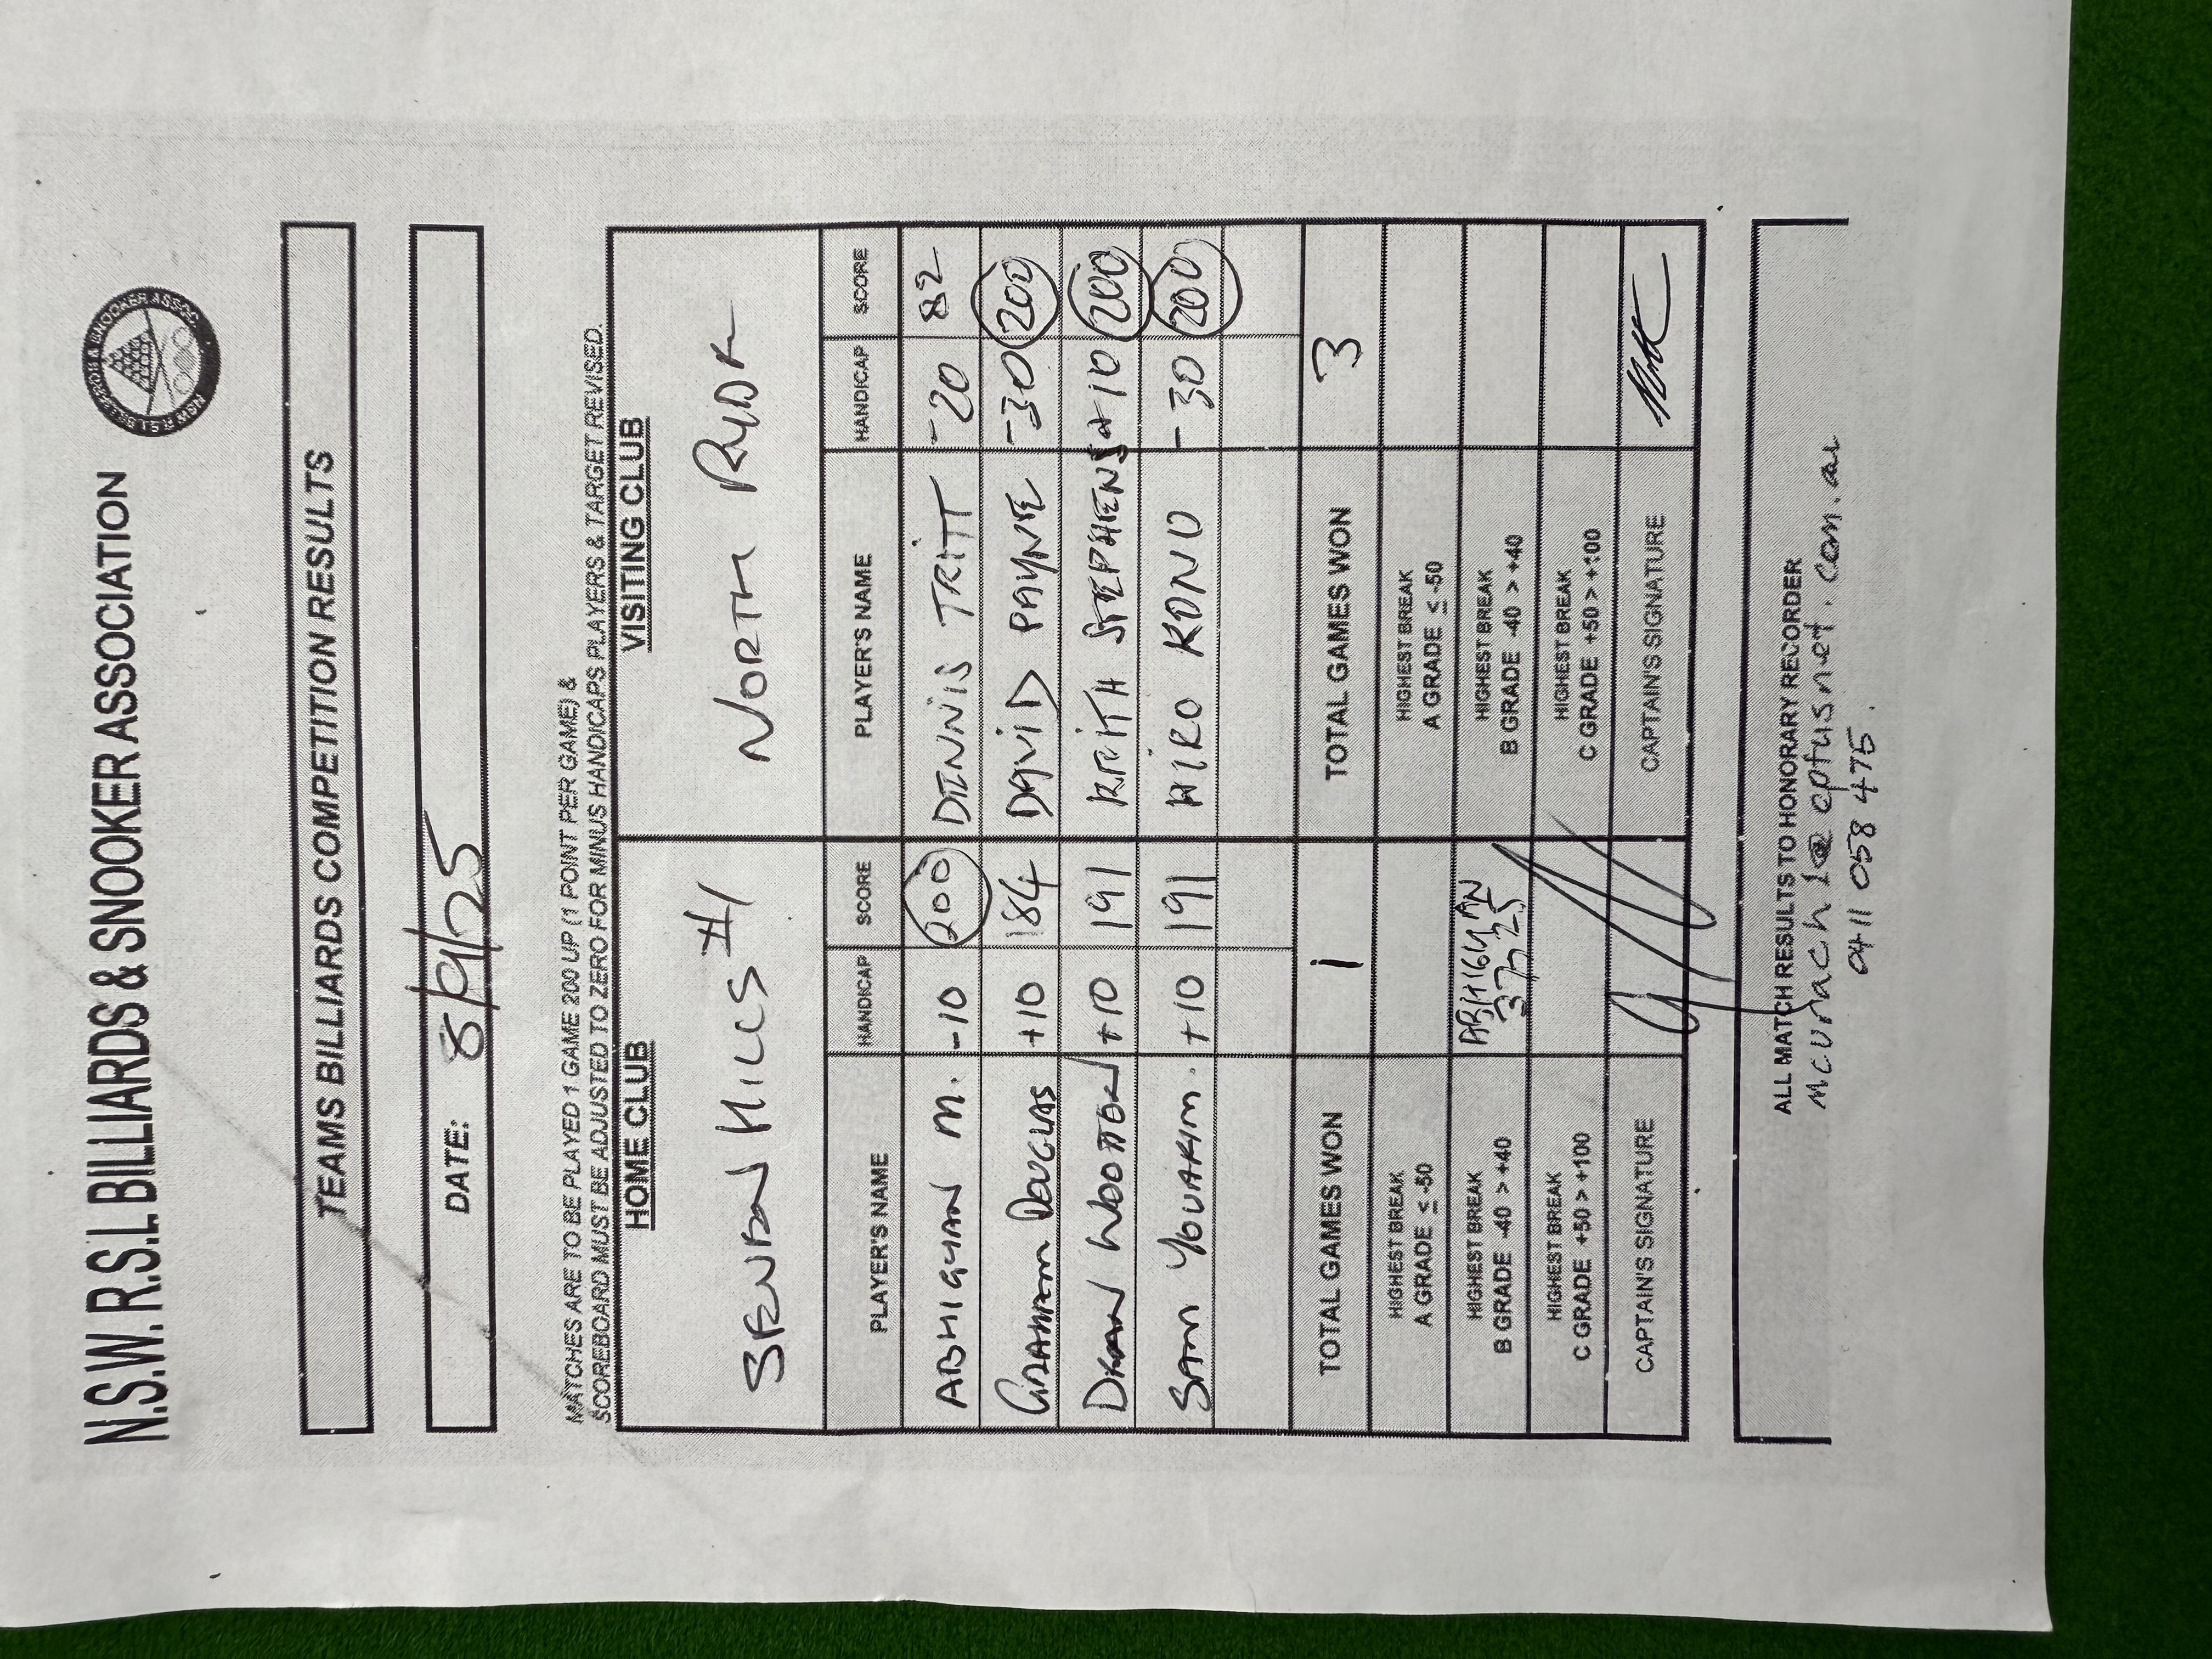 N.S.W. R.S.L. BILLIARDS & SNOOKER ASSOCIATION
N.S.W R.S.L BILLIARDS & SNOOKER ASSOC.
TEAMS BILLIARDS COMPETITION RESULTS
DATE: 8/9/25
MATCHES ARE TO BE PLAYED 1 GAME 200 UP (1 POINT PER GAME) &
SCOREBOARD MUST BE ADJUSTED TO ZERO FOR MINUS HANDICAPS PLAYERS & TARGET REVISED.
HOME CLUB VISITING CLUB
SEVEN HILLS #1 NORTH RYDE
PLAYER'S NAME HANDICAP SCORE PLAYER'S NAME HANDICAP SCORE
ABHIGYAN M. -10 200 DENNIS TRITT -20 82
GRAHAM DOUGLAS +10 184 DAVID PAYNE -30 200
DEAN WOOTTON +10 191 KEITH STEPHENS +10 200
SAM YOUAKIM. +10 191 HIRO KONO -30 200
TOTAL GAMES WON 1 TOTAL GAMES WON 3
HIGHEST BREAK A GRADE ≤ -50 HIGHEST BREAK A GRADE ≤ -50
HIGHEST BREAK B GRADE -40 > +40 ABHIGYAN 37, 25 HIGHEST BREAK B GRADE -40 > +40
HIGHEST BREAK C GRADE +50 > +100 HIGHEST BREAK C GRADE +50 > +100
CAPTAIN'S SIGNATURE CAPTAIN'S SIGNATURE
ALL MATCH RESULTS TO HONORARY RECORDER
mcurach1@optusnet.com.au
0411 058 475.